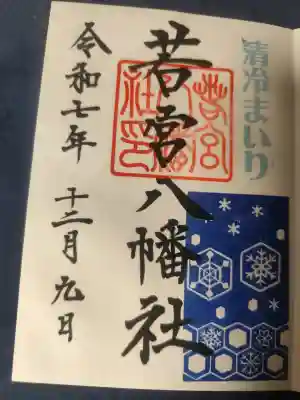 清冷まいり
若宮八幡社
若宮八幡社印
令和七年 十二月 九日